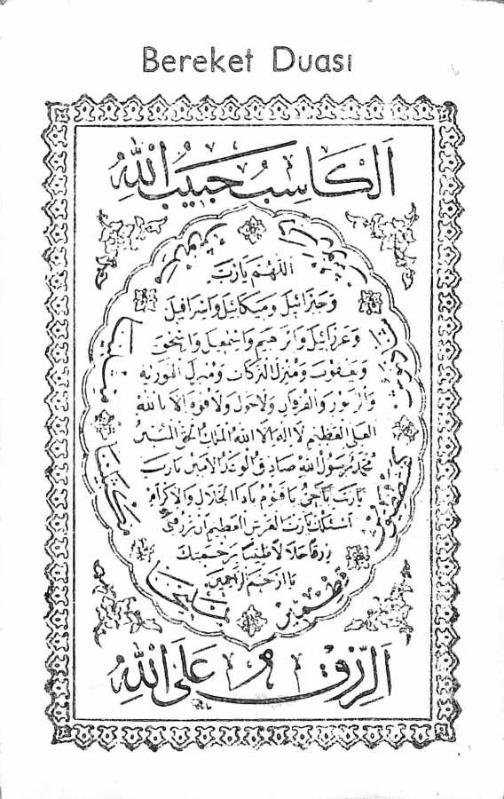 Bereket Duası
الكاسب حبيب الله
اللهم يا رب
وجبرائيل وميكائيل واسرافيل
وعزرائيل وابرهيم واسمعيل واسحق
ويعقوب ومنزل البركات ومنزل التورية
والزبور والفرقان ولا حول ولا قوة الا بالله
العلى العظيم لا اله الا الله الملك الحق المبين
محمد رسول الله صادق الوعد الامين يا رب
يا رب يا حى يا قيوم يا ذا الجلال والاكرام
اسئلك يا رب العرش العظيم ان ترزقنى
رزقا حلالا طيبا برحمتك
يا ارحم الراحمين
قطمير
الرزق على الله